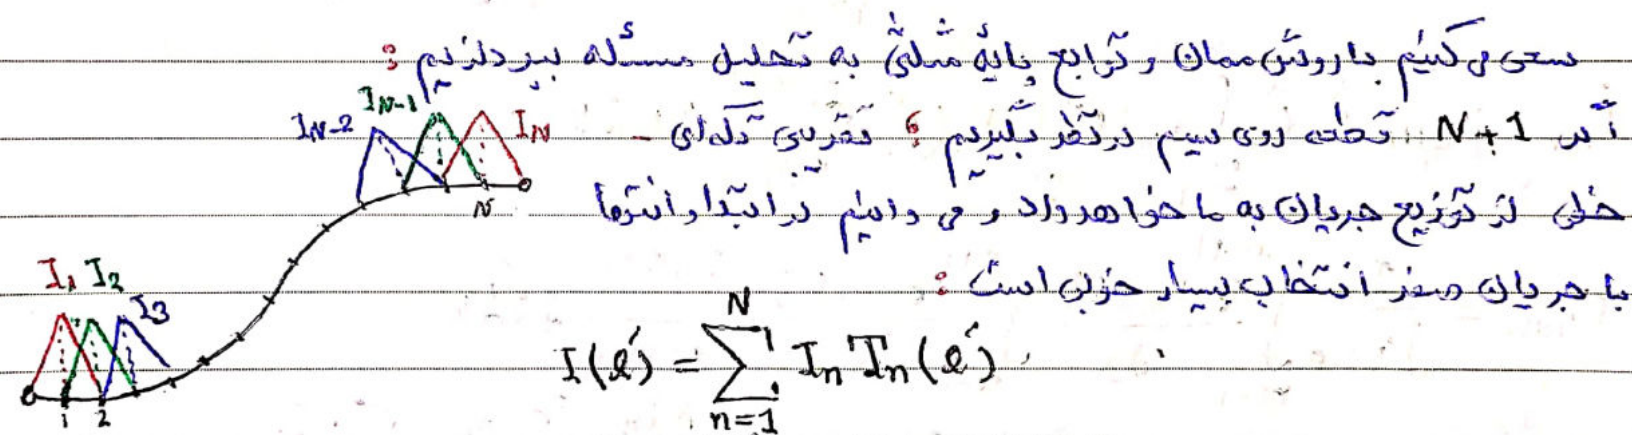 سعی می کنیم با روش ممان و توابع پایهٔ مثلثی به تحلیل مسئله بپردازیم :
I_{N-2} I_{N-1} I_N
اگر N+1 نقطه روی سیم در نظر بگیریم ؛ تقریبی تکه ای -
خطی از توزیع جریان به ما خواهد داد و می دانیم در ابتدا و انتها
N
با جریان صفر انتخاب بسیار خوبی است :
I_1 I_2 I_3
I(ℓ′) = \sum_{n=1}^{N} I_n T_n(ℓ′)
1 2